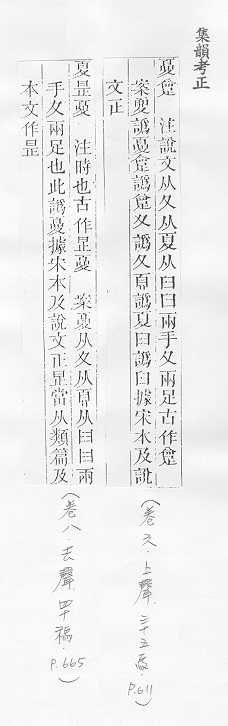 集韻考正
夓㿝 注說文从夂从夏从𦥑𦥑兩手夂兩足古作㿝
案夓譌憂㿝譌㿝夂譌久𦣻譌夏𦥑譌臼據宋本及說
文正
夏昰夓 注時也古作昰夓 案夓从夂从𦣻从𦥑𦥑兩
手夂兩足也此譌夓據宋本及說文正昰當从類篇及
本文作昰
(卷六·上聲 三十五馬·P.611)
(卷八·去聲 四十禡·P.665)